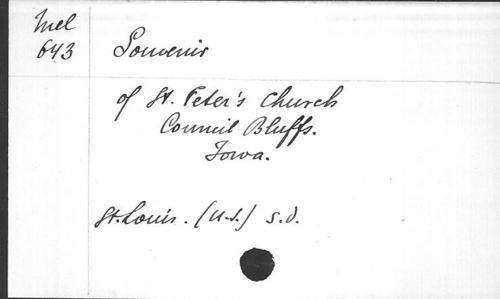 Mel
643
Souvenir
of St. Peter's Church
Council Bluffs.
Iowa.
St. Louis. (U.S.) s.d.